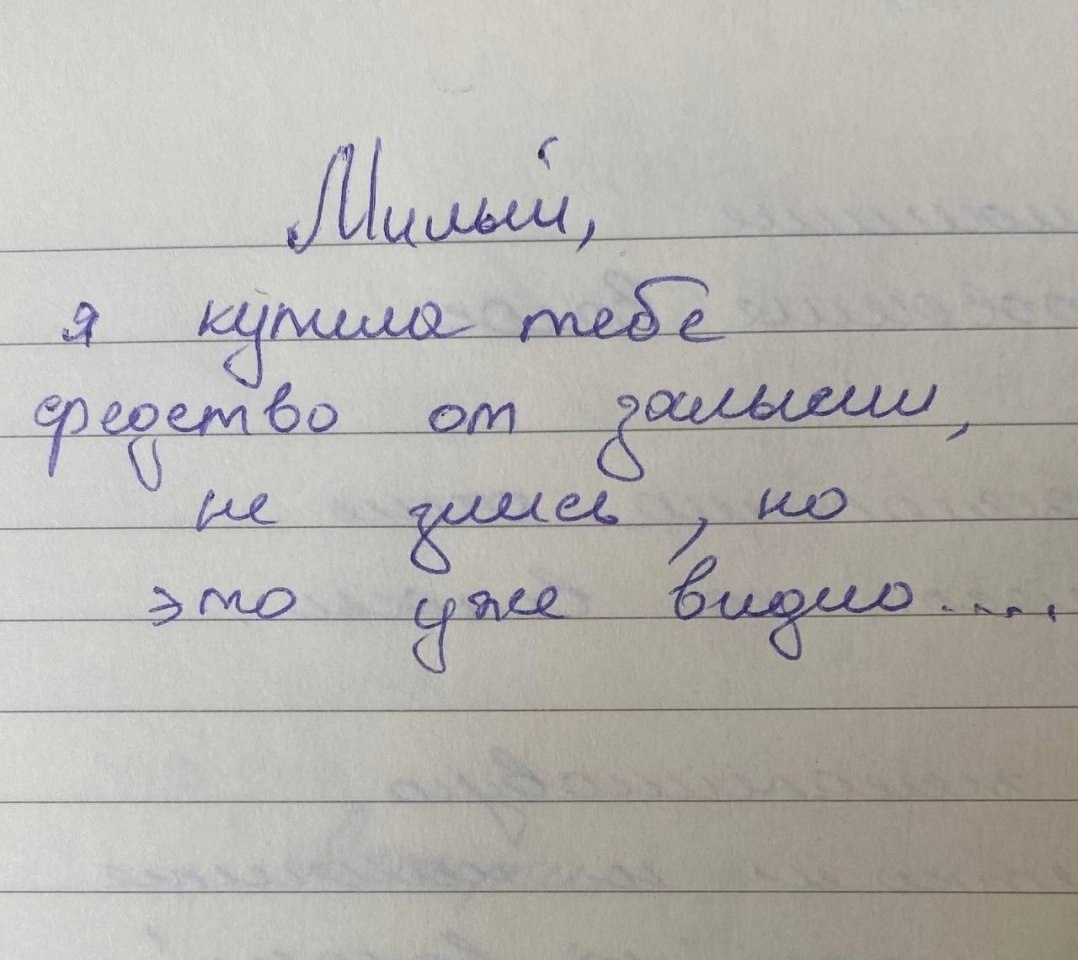 Милый,
я купила тебе
средство от залысин,
не злись, но
это уже видно....